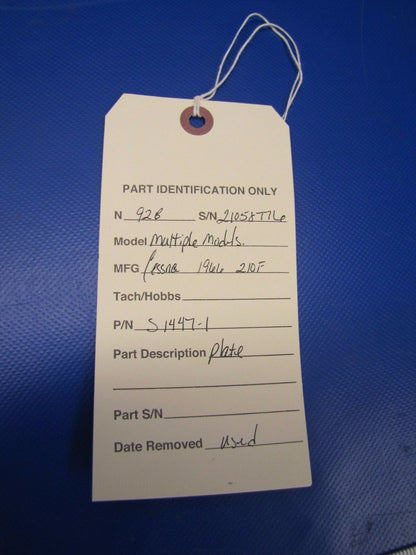 PART IDENTIFICATION ONLY
N 92B S/N 21058776
Model Multiple Models.
MFG Cessna 1966 210F
Tach/Hobbs
P/N S1447-1
Part Description plate
Part S/N
Date Removed used